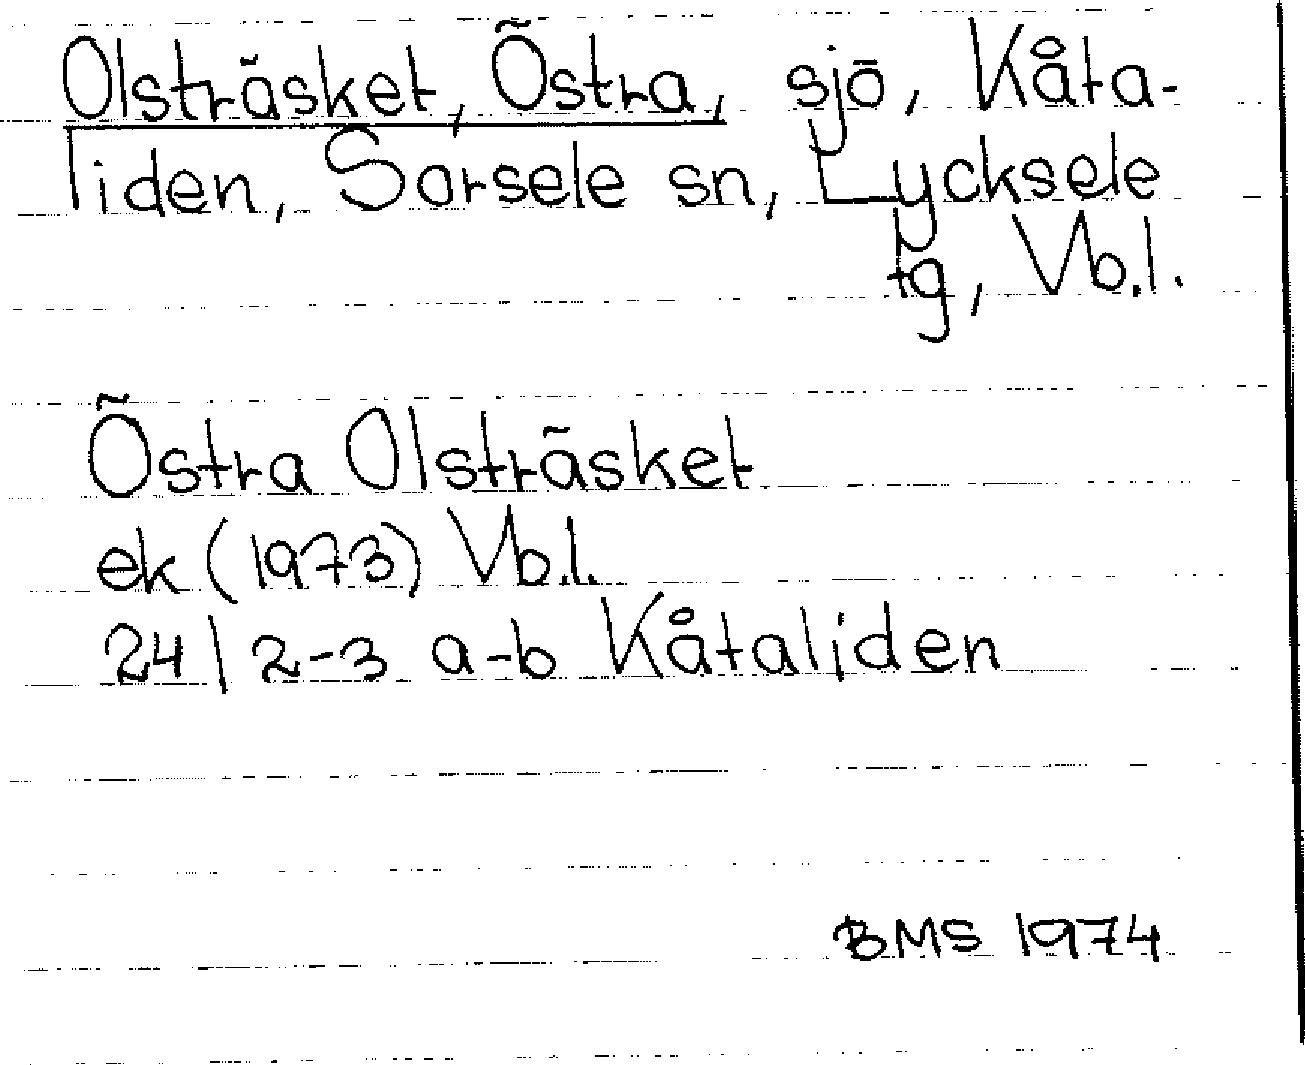 Olsträsket, Östra, sjö, Kåta-
liden, Sorsele sn, Lycksele
tg, Vb.l.
Östra Olsträsket
ek (1973) Vb.l.
24 | 2-3 a-b Kåtaliden
BMS 1974